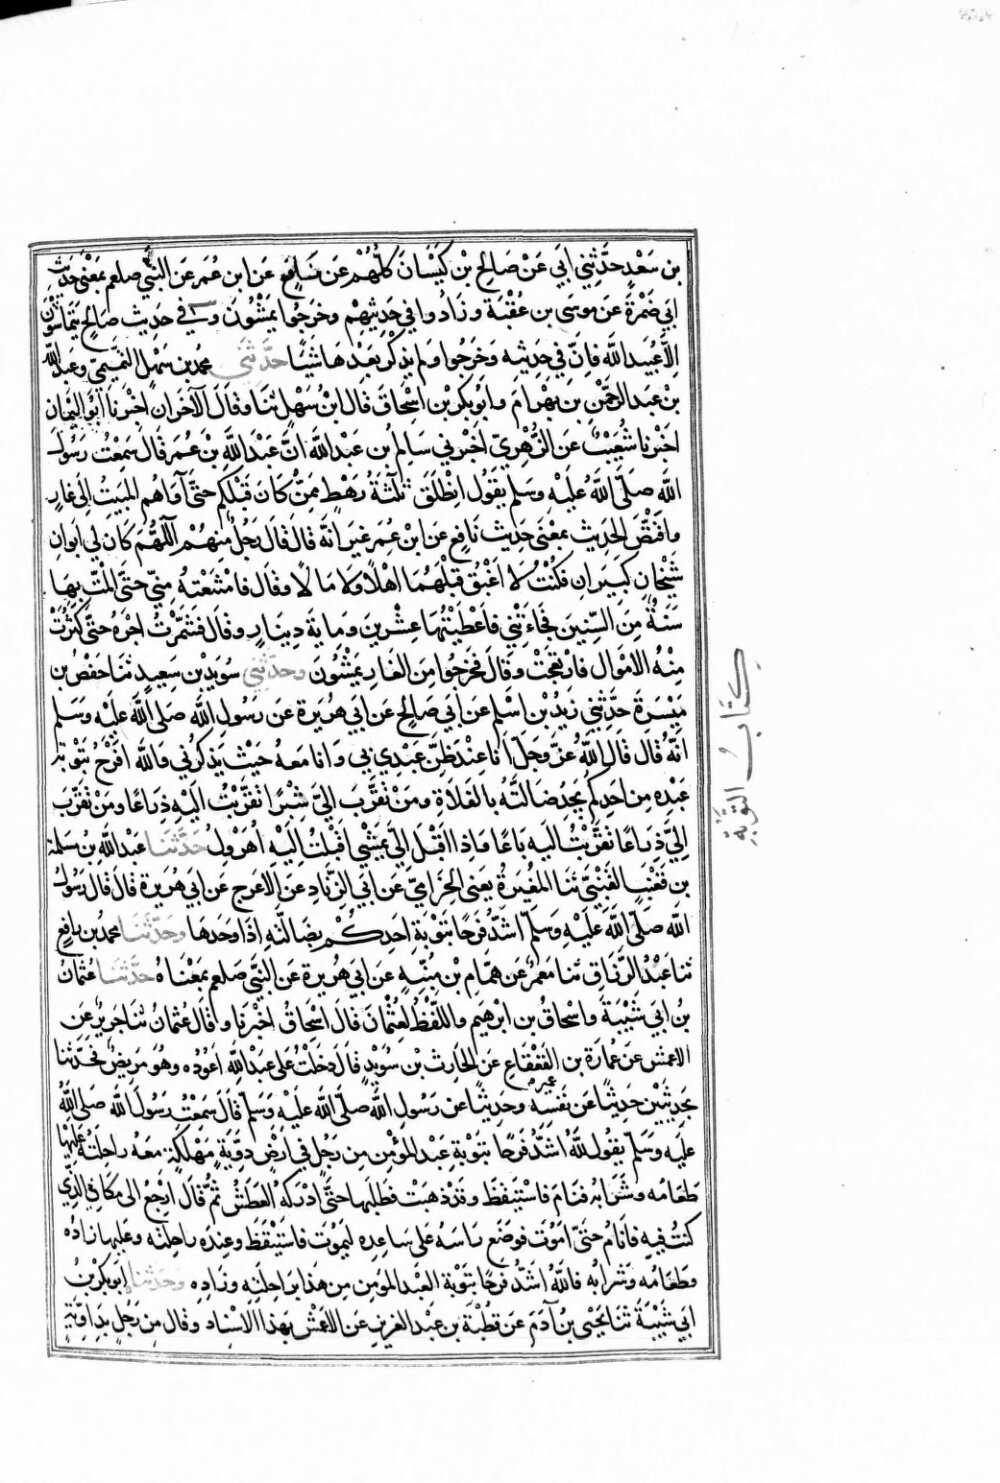 بن سَعْدٍ حَدَّثَنِي اَبِي عَنْ صَالِحِ بْنِ كَيْسَانَ كُلُّهُمْ عَنْ نَافِعٍ عَنِ ابْنِ عُمَرَ عَنِ النَّبِيِّ صلعم بِمَعْنَى حَدِيثِ
اَبِي ضَمْرَةَ عَنْ مُوسَى بنِ عُقْبَةَ وَزَادُوا فِي حَدِيثِهِمْ وَخَرَجُوا يَمْشُونَ وَفِي حَدِيثِ صَالِحٍ يَتَمَاشَوْنَ
اِلَّا عُبَيْدَ اللَّهِ فَاِنَّ فِي حَدِيثِهِ وَخَرَجُوا وَلَمْ يَذْكُرْ بَعْدَهَا شَيْئًا حَدَّثَنِي مُحَمَّدُ بن سَهْلٍ التَّمِيمِيُّ وَعَبْدُ اللَّهِ
بْنُ عَبْدِ الرَّحْمٰنِ بنِ بَهْرَامَ وَاَبُو بَكْرِ بْنُ اِسْحَاقَ قَالَ ابْنُ سَهْلٍ ثَنَا وَقَالَ الْآخَرَانِ اَخْبَرَنَا اَبُو الْيَمَانِ
اَخْبَرَنَا شُعَيْبٌ عَنِ الزُّهْرِيِّ اَخْبَرَنِي سَالِمُ بن عَبْدِ اللَّهِ اَنَّ عَبْدَ اللَّهِ بْنَ عُمَرَ قَالَ سَمِعْتُ رَسُولَ
اللَّهِ صَلَّى اللَّهُ عَلَيْهِ وَسَلَّمَ يَقُولُ اِنْطَلَقَ ثَلٰثَةُ رَهْطٍ مِمَّنْ كَانَ قَبْلَكُمْ حَتَّى آوَاهُمُ الْمَبِيتُ اِلَى غَارٍ
وَاقْتَصَّ الْحَدِيثَ بِمَعْنَى حَدِيثِ نَافِعٍ عَنِ ابْنِ عُمَرَ غَيْرَ اَنَّهُ قَالَ قَالَ رَجُلٌ مِنْهُمْ اَللَّهُمَّ كَانَ لِي اَبَوَانِ
شَيْخَانِ كَبِيرَانِ فَكُنْتُ لَا اَغْبُقُ قَبْلَهُمَا اَهْلًا وَلَا مَالًا وَقَالَ فَامْتَنَعَتْ مِنِّي حَتَّى اَلَمَّتْ بِهَا
سَنَةٌ مِنَ السِّنِينَ فَجَاءَتْنِي فَاَعْطَيْتُهَا عِشْرِينَ وَمِايَةَ دِينَارٍ وَقَالَ فَثَمَّرْتُ اَجْرَهُ حَتَّى كَثُرَتْ
مِنْهُ الْاَمْوَالُ فَارْتَعَجَتْ وَقَالَ فَخَرَجُوا مِنَ الْغَارِ يَمْشُونَ وَحَدَّثَنِي سُوَيْدُ بْنُ سَعِيدٍ ثَنَا حَفْصُ بن
مَيْسَرَةَ حَدَّثَنِي زَيْدُ بْنُ اَسْلَمَ عَنْ اَبِي صَالِحٍ عَنْ اَبِي هُرَيْرَةَ عَنْ رَسُولِ اللَّهِ صَلَّى اللَّهُ عَلَيْهِ وَسَلَّمَ
اَنَّهُ قَالَ قَالَ اللَّهُ عَزَّ وَجَلَّ اَنَا عِنْدَ ظَنِّ عَبْدِي بِي وَاَنَا مَعَهُ حَيْثُ يَذْكُرُنِي وَاللَّهِ اَفْرَحُ بِتَوْبَةِ
عَبْدِهِ مِنْ اَحَدِكُمْ يَجِدُ ضَالَّتَهُ بِالْفَلَاةِ وَمَنْ تَقَرَّبَ اِلَيَّ شِبْرًا تَقَرَّبْتُ اِلَيْهِ ذِرَاعًا وَمَنْ تَقَرَّبَ
اِلَيَّ ذِرَاعًا تَقَرَّبْتُ اِلَيْهِ بَاعًا وَاِذَا اَقْبَلَ اِلَيَّ يَمْشِي اَقْبَلْتُ اِلَيْهِ اُهَرْوِلُ حَدَّثَنَا عَبْدُ اللَّهِ بْنُ سَلَمَةَ
بن قَعْنَبٍ الْقَعْنَبِيُّ ثَنَا الْمُغِيرَةُ يَعْنِي الْحِزَامِيَّ عَنْ اَبِي الزِّنَادِ عَنِ الْاَعْرَجِ عَنْ اَبِي هُرَيْرَةَ قَالَ قَالَ رَسُولُ
اللَّهِ صَلَّى اللَّهُ عَلَيْهِ وَسَلَّمَ اَشَدُّ فَرَحًا بِتَوْبَةِ اَحَدِكُمْ بِضَالَّتِهِ اِذَا وَجَدَهَا وَحَدَّثَنَا مُحَمَّدُ بن رَافِعٍ
ثَنَا عَبْدُ الرَّزَّاقِ ثَنَا مَعْمَرٌ عَنْ هَمَّامِ بْنِ مُنَبِّهٍ عَنْ اَبِي هُرَيْرَةَ عَنِ النَّبِيِّ صلعم بِمَعْنَاهُ حَدَّثَنَا عُثْمَانُ
بْنُ اَبِي شَيْبَةَ وَاِسْحَاقُ بن ابْرٰهِيمَ وَاللَّفْظُ لِعُثْمَانَ قَالَ اِسْحَاقُ اَخْبَرَنَا وَقَالَ عُثْمَانُ ثَنَا جَرِيرٌ عَنِ
الْاَعْمَشِ عَنْ عُمَارَةَ بنِ الْقَعْقَاعِ عَنِ الْحَارِثِ بْنِ سُوَيْدٍ قَالَ دَخَلْتُ عَلَى عَبْدِ اللَّهِ اَعُودُهُ وَهُوَ مَرِيضٌ فَحَدَّثَنَا
بِحَدِيثَيْنِ حَدِيثًا عَنْ نَفْسِهِ وَحَدِيثًا عَنْ رَسُولِ اللَّهِ صَلَّى اللَّهُ عَلَيْهِ وَسَلَّمَ قَالَ سَمِعْتُ رَسُولَ اللَّهِ صَلَّى اللَّهُ
عَلَيْهِ وَسَلَّمَ يَقُولُ لَلَّهُ اَشَدُّ فَرَحًا بِتَوْبَةِ عَبْدِهِ الْمُؤْمِنِ مِنْ رَجُلٍ فِي اَرْضٍ دَوِّيَّةٍ مَهْلَكَةٍ مَعَهُ رَاحِلَتُهُ عَلَيْهَا
طَعَامُهُ وَشَرَابُهُ فَنَامَ فَاسْتَيْقَظَ وَقَدْ ذَهَبَتْ فَطَلَبَهَا حَتَّى اَدْرَكَهُ الْعَطَشُ ثُمَّ قَالَ اَرْجِعُ الى مَكَانِي الَّذِي
كُنْتُ فِيهِ فَاَنَامُ حَتَّى اَمُوتَ فَوَضَعَ رَاسَهُ عَلَى سَاعِدِهِ لِيَمُوتَ فَاسْتَيْقَظَ وَعِنْدَهُ رَاحِلَتُهُ وَعَلَيْهَا زَادُهُ
وَطَعَامُهُ وَشَرَابُهُ فَاللَّهُ اَشَدُّ فَرَحًا بِتَوْبَةِ الْعَبْدِ الْمُؤْمِنِ مِنْ هَذَا بِرَاحِلَتِهِ وَزَادِهِ وَحَدَّثَنَا اَبُو بَكْرِ بْنُ
اَبِي شَيْبَةَ ثَنَا يَحْيَى بنُ آدَمَ عَنْ قُطْبَةَ بنِ عَبْدِ الْعَزِيزِ عَنِ الْاَعْمَشِ بِهَذَا الْاِسْنَادِ وَقَالَ مِنْ رَجُلٍ بِدَاوِيَّةٍ
كِتَابُ التَّوْبَةِ